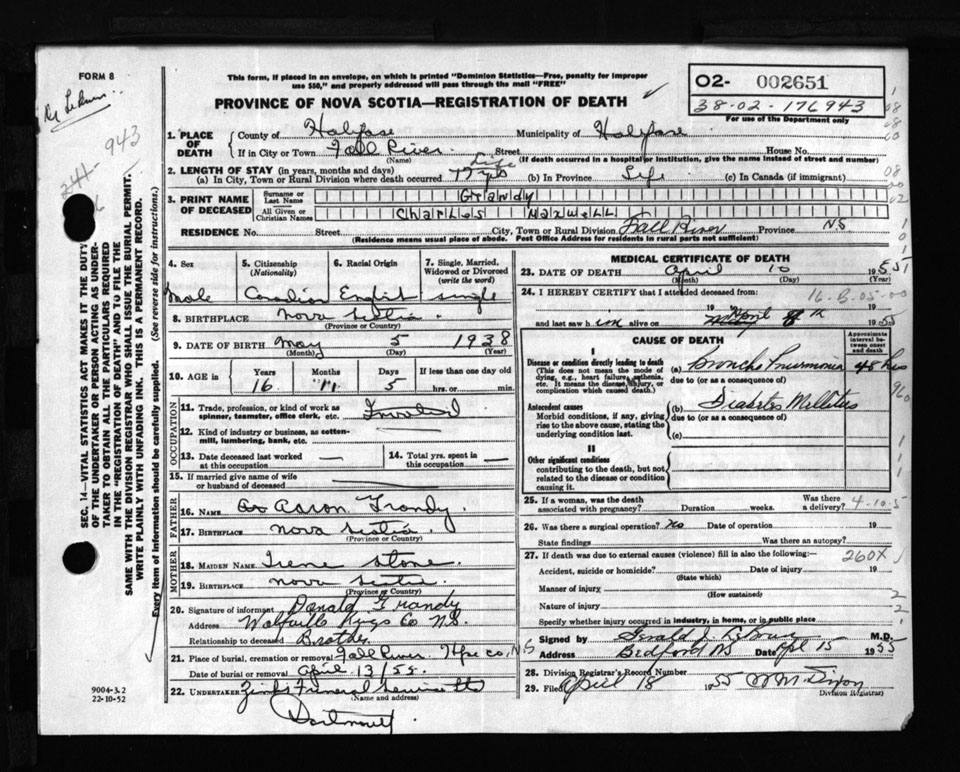 FORM 8
This form, if placed in an envelope, on which is printed "Dominion Statistics—Free, penalty for improper
use $50," and properly addressed will pass through the mail "FREE"
PROVINCE OF NOVA SCOTIA—REGISTRATION OF DEATH
02- 002651
38-02-176943
For use of the Department only
943
SEC. 14—VITAL STATISTICS ACT MAKES IT THE DUTY
OF THE UNDERTAKER OR PERSON ACTING AS UNDER-
TAKER TO OBTAIN ALL THE PARTICULARS REQUIRED
IN THE "REGISTRATION OF DEATH" AND TO FILE THE
SAME WITH THE DIVISION REGISTRAR WHO SHALL ISSUE THE BURIAL PERMIT.
WRITE PLAINLY WITH UNFADING INK. THIS IS A PERMANENT RECORD.
Every item of information should be carefully supplied. (See reverse side for instructions.)
1. PLACE OF DEATH
County of Halifax Municipality of Halifax
If in City or Town Fall River Street House No.
(Name) (If death occurred in a hospital or institution, give the name instead of street and number)
2. LENGTH OF STAY (in years, months and days)
(a) In City, Town or Rural Division where death occurred Life (b) In Province Life (c) In Canada (if immigrant)
3. PRINT NAME OF DECEASED
Surname or Last Name Grandy
All Given or Christian Names Charles Maxwell
RESIDENCE No. Street City, Town or Rural Division Fall River Province NS
(Residence means usual place of abode. Post Office Address for residents in rural parts not sufficient)
4. Sex 5. Citizenship (Nationality) 6. Racial Origin 7. Single, Married, Widowed or Divorced (write the word)
Male Canadian English single
8. BIRTHPLACE Nova Scotia
(Province or Country)
9. DATE OF BIRTH May 5 1938
(Month) (Day) (Year)
10. AGE in Years Months Days If less than one day old
16 11 5 hrs. or min.
OCCUPATION
11. Trade, profession, or kind of work as
spinner, teamster, office clerk, etc.
12. Kind of industry or business, as cotton-
mill, lumbering, bank, etc. —
13. Date deceased last worked at this occupation — 14. Total yrs. spent in this occupation —
15. If married give name of wife or husband of deceased
FATHER
16. NAME Aaron Grandy
17. BIRTHPLACE Nova Scotia
(Province or Country)
MOTHER
18. MAIDEN NAME Irene Stone
19. BIRTHPLACE Nova Scotia
(Province or Country)
20. Signature of informant Donald Grandy
Address Wolfville Kings Co N.S.
Relationship to deceased Brother
21. Place of burial, cremation or removal Fall River Hfx Co, NS
Date of burial or removal April 13/55
22. UNDERTAKER Funeral Service Ltd
(Name and address)
Dartmouth.
9004-3.2
22-10-52
MEDICAL CERTIFICATE OF DEATH
23. DATE OF DEATH April 10 1955
(Month) (Day)
24. I HEREBY CERTIFY that I attended deceased from
16-B-05-00
19
and last saw him alive on April 8th 1955
CAUSE OF DEATH
Approximate interval between onset and death
I
Disease or condition directly leading to death
(This does not mean the mode of dying, e.g., heart failure, asthenia, etc. It means the disease, injury, or complication which caused death.)
(a) Broncho Pneumonia 48 hrs
due to (or as a consequence of)
Antecedent causes
Morbid conditions, if any, giving rise to the above cause, stating the underlying condition last.
(b) Diabetes Mellitus
due to (or as a consequence of)
(c)
II
Other significant conditions
contributing to the death, but not related to the disease or condition causing it.
25. If a woman, was the death associated with pregnancy? Duration weeks. Was there a delivery?
4-10-5
26. Was there a surgical operation? No Date of operation 19
State findings Was there an autopsy?
27. If death was due to external causes (violence) fill in also the following:—
260X
Accident, suicide or homicide? Date of injury 19
(State which)
Manner of injury
(How sustained)
Nature of injury
Specify whether injury occurred in industry, in home, or in public place
Signed by Gerald J. LeBrun M.D.
Address Bedford NS Date Apl 15 1955
28. Division Registrar's Record Number
29. Filed April 18 1955 M Dixon
Division Registrar